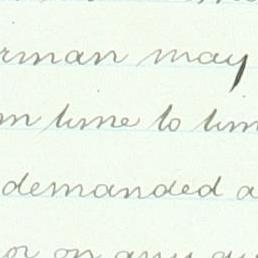 rman may
m time to tim
demanded a
or on any qu